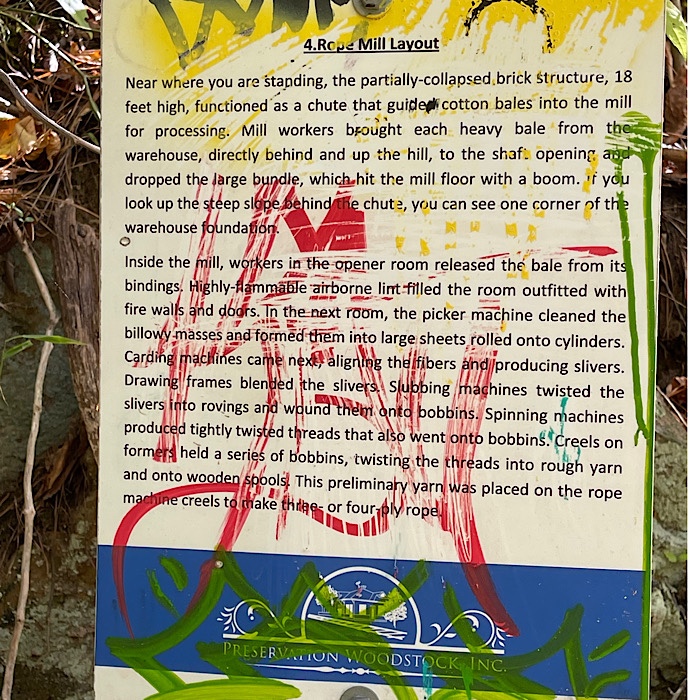 4.Rope Mill Layout
Near where you are standing, the partially-collapsed brick structure, 18
feet high, functioned as a chute that guided cotton bales into the mill
for processing. Mill workers brought each heavy bale from the
warehouse, directly behind and up the hill, to the shaft opening and
dropped the large bundle, which hit the mill floor with a boom. If you
look up the steep slope behind the chute, you can see one corner of the
warehouse foundation.
Inside the mill, workers in the opener room released the bale from its
bindings. Highly-flammable airborne lint filled the room outfitted with
fire walls and doors. In the next room, the picker machine cleaned the
billowy masses and formed them into large sheets rolled onto cylinders.
Carding machines came next, aligning the fibers and producing slivers.
Drawing frames blended the slivers. Slubbing machines twisted the
slivers into rovings and wound them onto bobbins. Spinning machines
produced tightly twisted threads that also went onto bobbins. Creels on
formers held a series of bobbins, twisting the threads into rough yarn
and onto wooden spools. This preliminary yarn was placed on the rope
machine creels to make three- or four-ply rope.
PRESERVATION WOODSTOCK, INC.